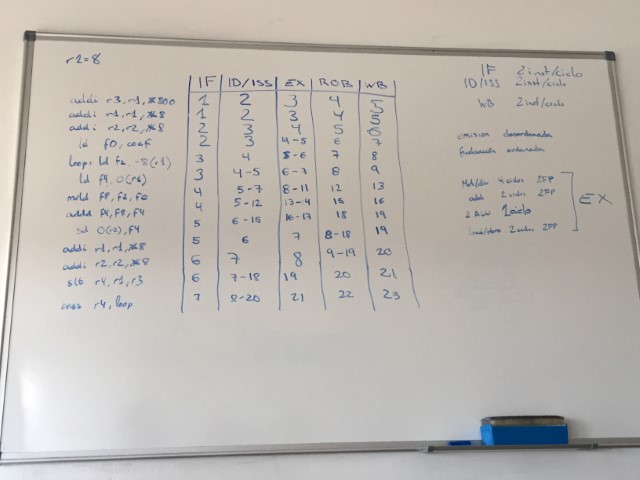 r2=8
IF ID/ISS EX ROB WB
addi r3, r1, #800 1 2 3 4 5
addi r1, r1, #8 1 2 3 4 5
addi r2, r2, #8 2 3 4 5 6
ld f0, coef 2 3 4-5 6 7
loop: ld f2, -8(r1) 3 4 5-6 7 8
ld f4, 0(r2) 3 4-5 6-7 8 9
muld f8, f2, f0 4 5-7 8-11 12 13
addd f4, f8, f4 4 5-12 13-14 15 16
sd 0(r2), f4 5 6-15 16-17 18 19
addi r1, r1, #8 5 6 7 8-18 19
addi r2, r2, #8 6 7 8 9-19 20
slt r4, r1, r3 6 7-18 19 20 21
r4, loop 7 8-20 21 22 23
IF 2 inst/ciclo
ID/ISS 2 inst/ciclo
WB 2 inst/ciclo
emision desordenada
finalización ordenada
Mult/div 4 ciclos 2FP
add 2 ciclos 2FP
2 ALU 1 ciclo
load/store 2 ciclos 2FP
EX